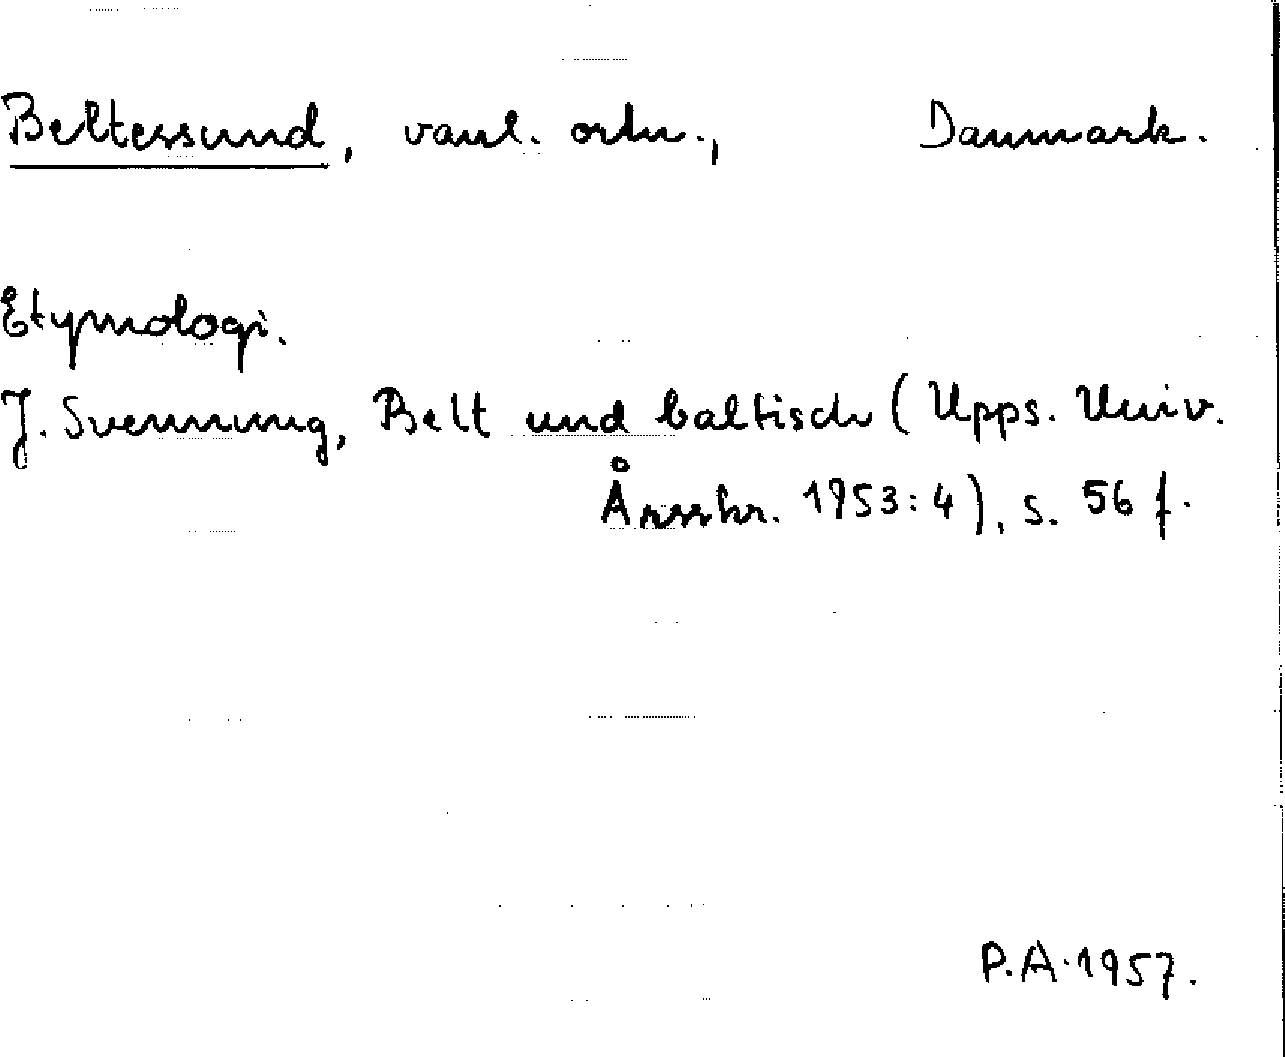 Beltessund, vanl. ortn., Danmark.
Etymologi.
J. Svennung, Belt und baltisch (Upps. Univ.
Årsskr. 1953:4), s. 56 f.
P.A. 1957.